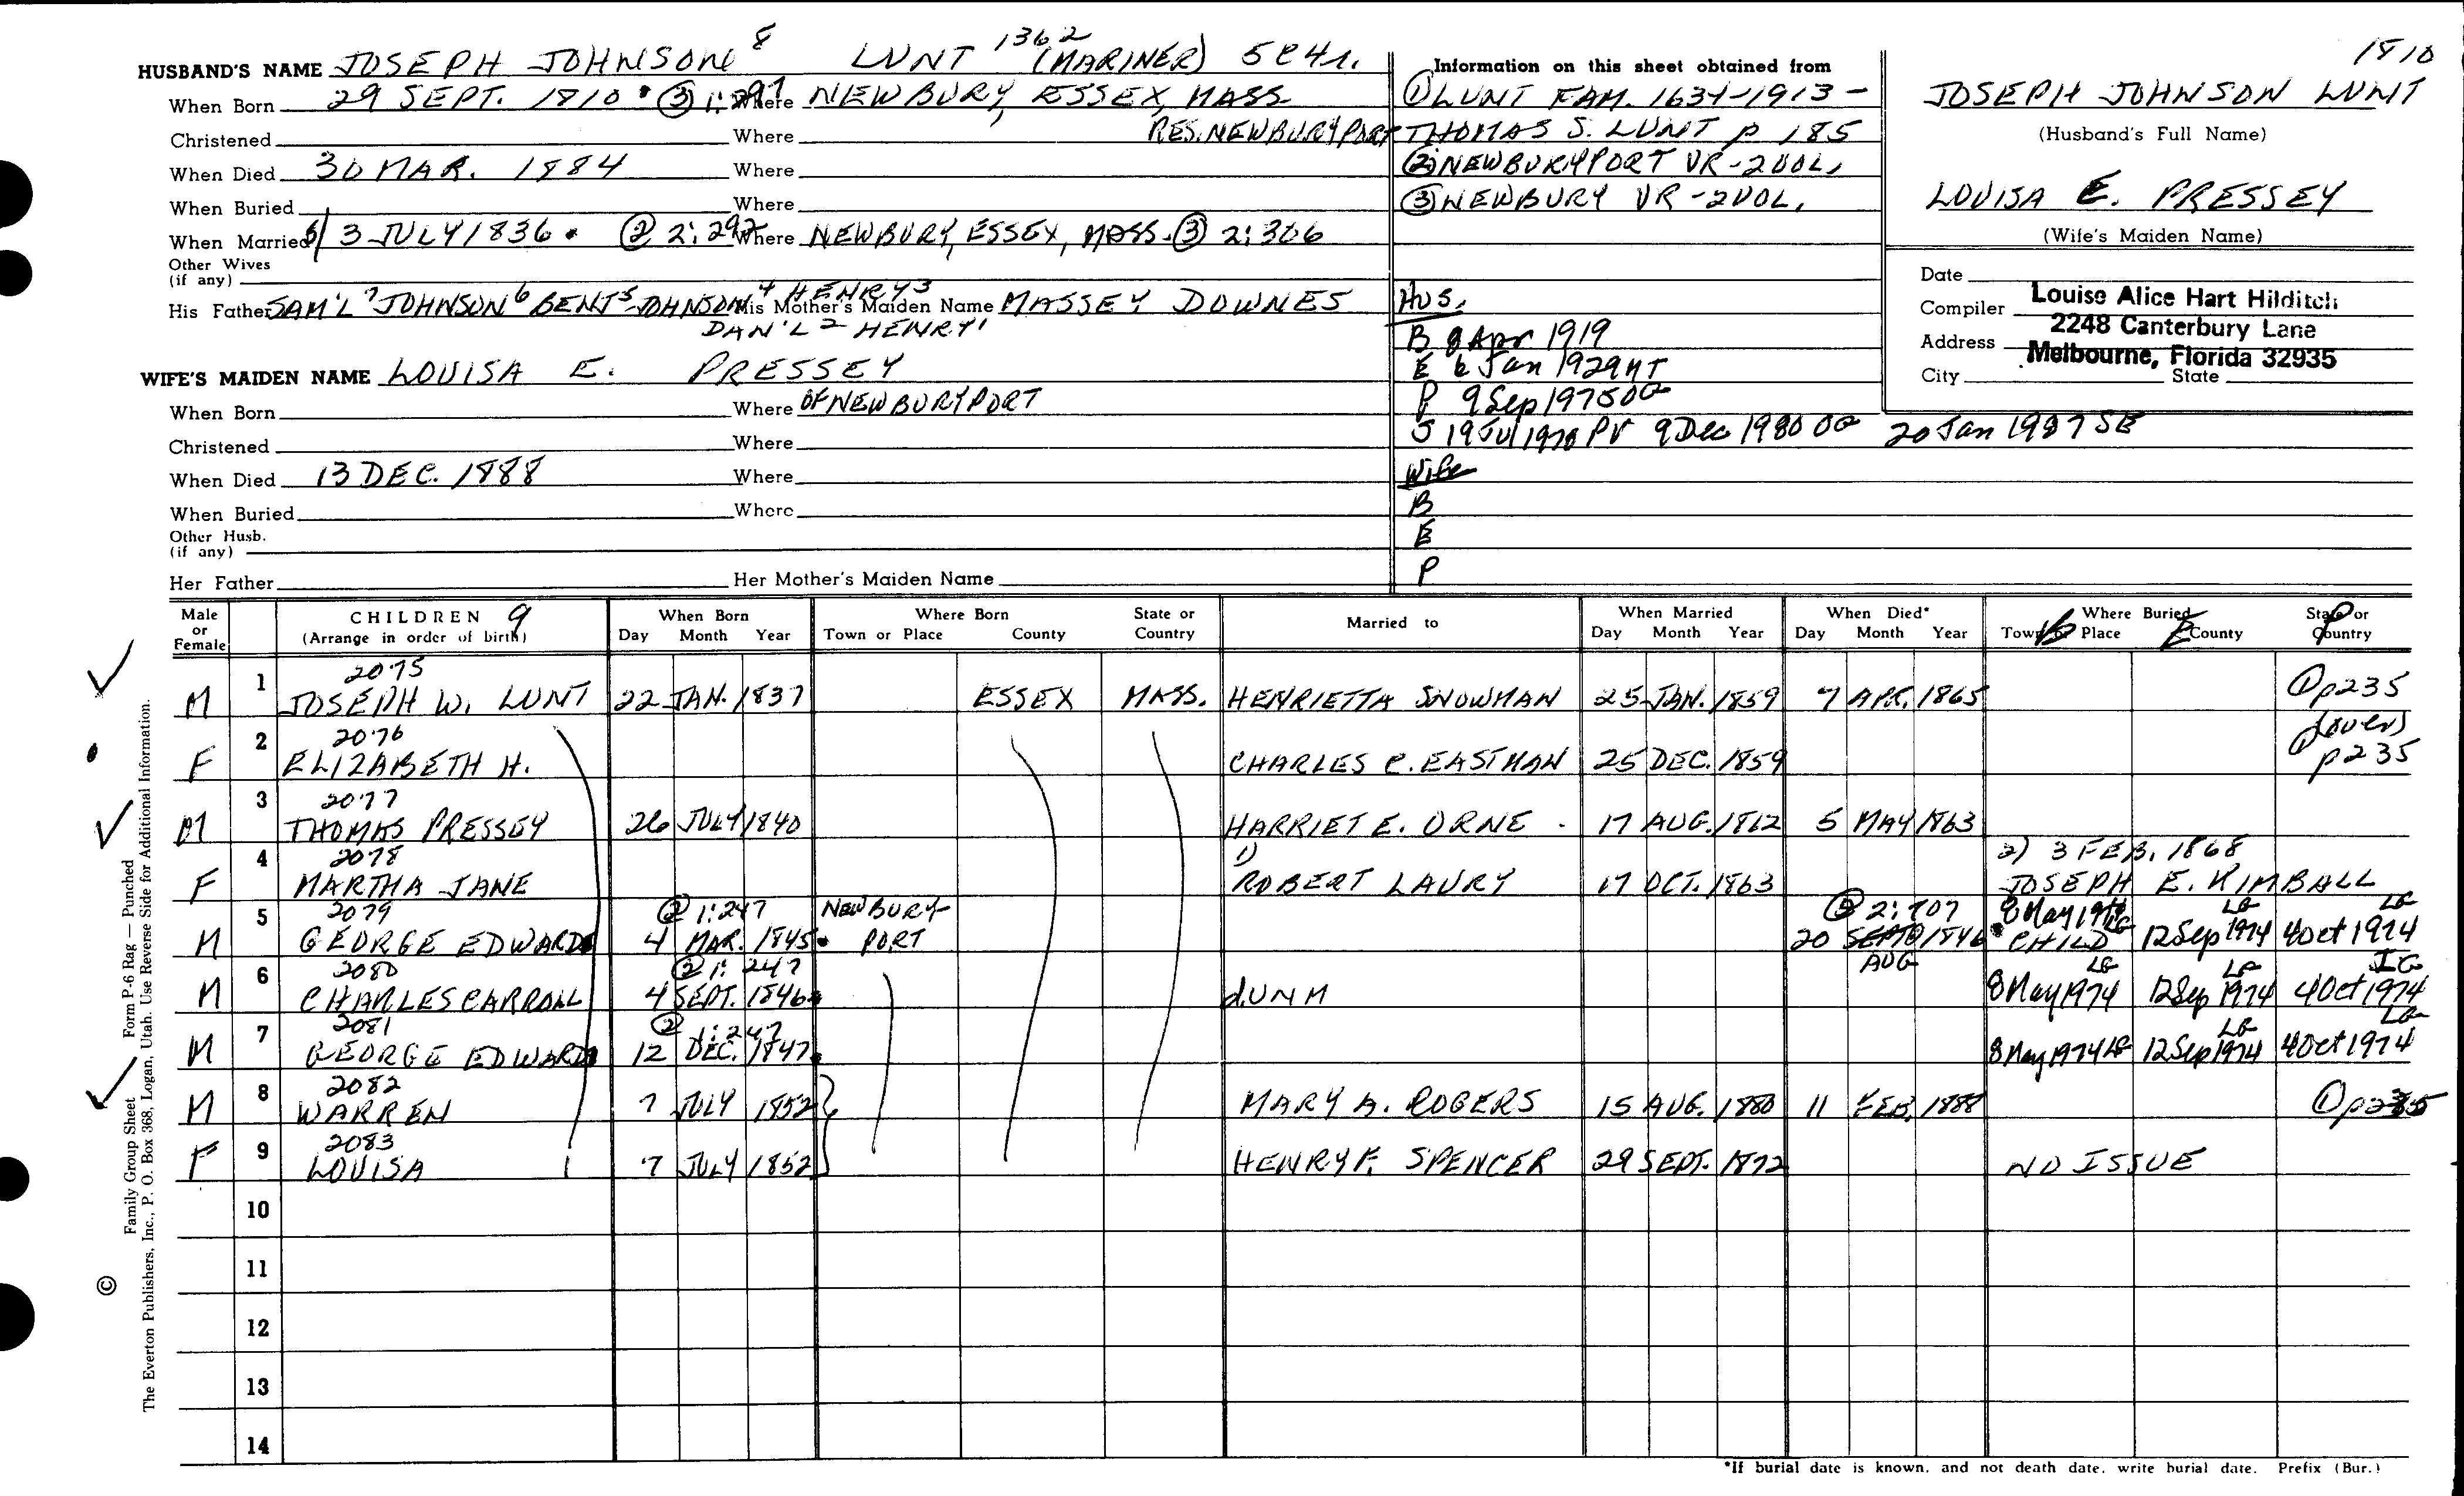 1810
HUSBAND'S NAME JOSEPH JOHNSON 8 LUNT 1362 (MARINER)
When Born 29 SEPT. 1810 • ③ 1:297 Where NEWBURY, ESSEX, MASS
Christened Where RES. NEWBURYPORT
When Died 30 MAR. 1884 Where
When Buried Where
When Married 3 JULY 1836 • ② 2:292 Where NEWBURY, ESSEX, MASS. ③ 2:306
Other Wives
(if any)
His Father SAM'L 7 JOHNSON 6 BENJ 5 JOHNSON 4 HENRY 3 His Mother's Maiden Name MASSEY DOWNES
DAN'L 2 HENRY 1
WIFE'S MAIDEN NAME LOUISA E. PRESSEY
When Born Where OF NEWBURYPORT
Christened Where
When Died 13 DEC. 1888 Where
When Buried Where
Other Husb.
(if any)
Her Father Her Mother's Maiden Name
Information on this sheet obtained from
① LUNT FAM. 1634-1913-
THOMAS S. LUNT p 185
② NEWBURYPORT VR-2VOL,
③ NEWBURY VR-2VOL,
Hus.
B 8 Apr 1919
E 6 Jan 1929
P 9 Sep 1975 OG
S 19 Jul 1978 PV 9 Dec 1980 OG 20 Jan 1987 SE
Wife
B
E
P
JOSEPH JOHNSON LUNT
(Husband's Full Name)
LOUISA E. PRESSEY
(Wife's Maiden Name)
Date
Compiler Louise Alice Hart Hilditch
2248 Canterbury Lane
Address
Melbourne, Florida 32935
City State
Male or Female CHILDREN 9 (Arrange in order of birth) When Born Day Month Year Where Born Town or Place County State or Country Married to When Married Day Month Year When Died* Day Month Year Where Buried Town or Place County State or Country B E P
2075
M 1 JOSEPH W. LUNT 22 JAN. 1837 ESSEX MASS. HENRIETTA SNOWMAN 25 JAN. 1859 7 APR. 1865 ① p235
2076
F 2 ELIZABETH H. CHARLES C. EASTMAN 25 DEC. 1859 ① p235
2077
M 3 THOMAS PRESSEY 26 JULY 1840 HARRIET E. ORNE 17 AUG. 1862 5 MAY 1863
2078 1) 2) 3 FEB. 1868
F 4 MARTHA JANE ROBERT LAURY 17 OCT. 1863 JOSEPH E. KIMBALL
2079 ② 1:247 NEWBURY- ② 2:707 8 May 1974 LG LG LG
M 5 GEORGE EDWARD 4 MAR. 1845 • PORT 20 SEPT 1846 • CHILD 12 Sep 1974 4 Oct 1974
AUG
2080 ② 1:247 LG LG IG
M 6 CHARLES CARROLL 4 SEPT. 1846 • d.UNM 8 May 1974 12 Sep 1974 4 Oct 1974
2081 ② 1:247 LG LG
M 7 GEORGE EDWARD 12 DEC. 1847 • 8 May 1974 LG 12 Sep 1974 4 Oct 1974
2082
M 8 WARREN 7 JULY 1852 MARY A. ROGERS 15 AUG. 1880 11 FEB. 1888 ① p235
2083
F 9 LOUISA 7 JULY 1852 HENRY F. SPENCER 29 SEPT. 1872 NO ISSUE
10
11
12
13
14
*If burial date is known, and not death date, write burial date. Prefix (Bur.)
© Family Group Sheet Form P-6 Rag — Punched
The Everton Publishers, Inc., P. O. Box 368, Logan, Utah. Use Reverse Side for Additional Information.